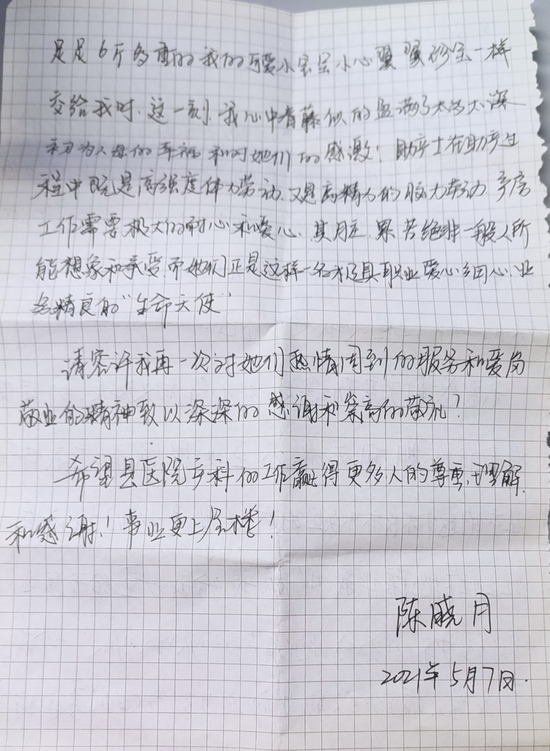 足足6斤多重的我的可爱小宝宝小心翼翼珍宝一样
交给我时，这一刻，我心中满满的
初为人母的幸福和对她们的感激！助产士在助产过
程中既是高强度体力劳动，又是高精力的脑力劳动，产房
工作需要极大的耐心和爱心，其脏、累、苦绝非一般人所
能想象和承受而她们正是这样一名极具职业爱心细心、业
务精良的“生命天使”
请容许我再一次对她们热情周到的服务和爱岗
敬业的精神致以深深的感谢和崇高的敬礼？
希望县医院产科的工作赢得更多人的尊重、理解
和感谢！事业更上层楼！
陈晓月
2021年5月7日.